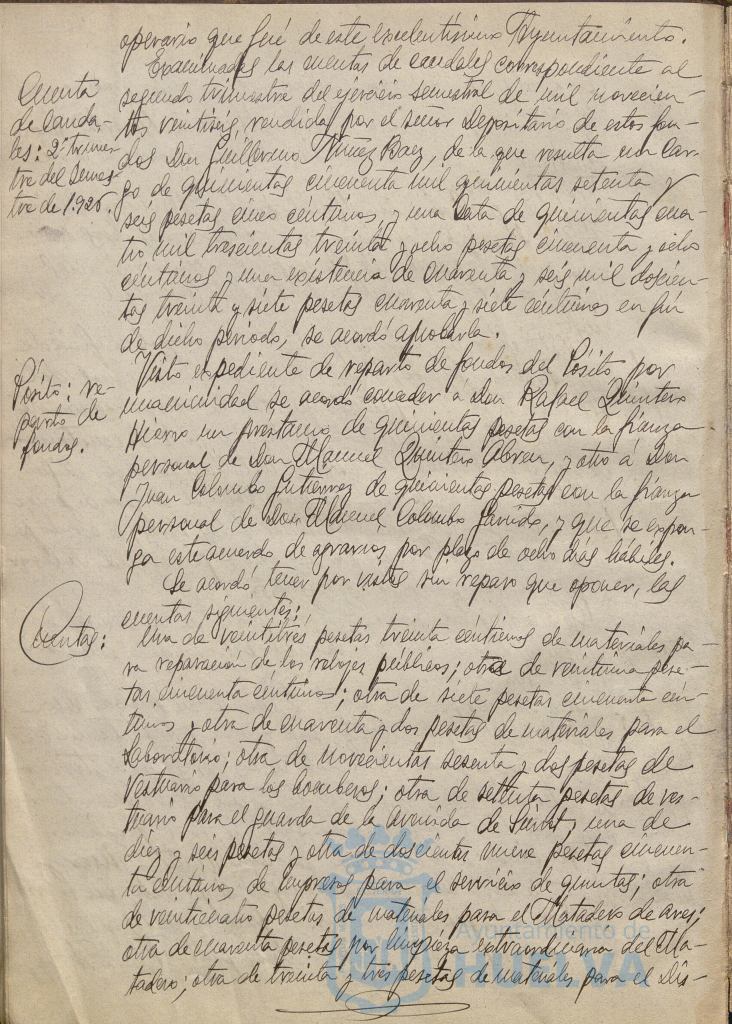 operario que fué de este excelentísimo Ayuntamiento.
Cuenta
de Cauda-
les: 2º trimes-
tre del Semes-
tre de 1.926.
Examinadas las cuentas de caudales correspondiente al
segundo trimestre del ejercicio semestral de mil novecien-
tos veintiseis, rendida por el señor Depositario de estos fon-
dos Don Guillermo Núñez Baez, de la que resulta un Car-
go de quinientas cincuenta mil quinientas setenta y
seis pesetas cinco céntimos, y una Data de quinientas cua-
tro mil trescientas treinta y ocho pesetas cincuenta y ocho
céntimos y una existencia de cuarenta y seis mil doscien-
tas treinta y siete pesetas cuarenta y siete céntimos en fin
de dicho periodo, se acordó aprobarla.
Pósito: re-
parto de
fondos.
Visto expediente de reparto de fondos del Pósito, por
unanimidad se acordó conceder á Don Rafael Quintero
Hierro un prestamo de quinientas pesetas con la fianza
personal de Don Manuel Quintero Abreu, y otro á Don
Juan Colombo Gutiérrez de quinientas pesetas con la fianza
personal de Don Manuel Colombo Garrido, y que se expon-
ga este acuerdo de agravios por plazo de ocho días hábiles.
Se acordó tener por vistas sin reparo que oponer, las
cuentas siguientes:
Cuentas:
Una de veintitrés pesetas treinta céntimos de materiales pa-
ra reparación de los relojes públicos; otra de veintiuna pese-
tas cincuenta céntimos; otra de siete pesetas cincuenta cén-
timos y otra de cuarenta y dos pesetas de materiales para el
Laboratorio; otra de novecientas sesenta y dos pesetas de
Vestuario para los bomberos; otra de setenta pesetas de ves-
tuario para el guarda de la avenida de ; una de
diez y seis pesetas y otra de doscientas nueve pesetas cincuen-
ta céntimos de impresos para el servicio de quintas; otra
de veinticuatro pesetas de materiales para el Matadero de aves;
otra de cuarenta pesetas por limpieza extraordinaria del Ma-
tadero; otra de treinta y tres pesetas de materiales para el Dis-
Ayuntamiento de
HUELVA